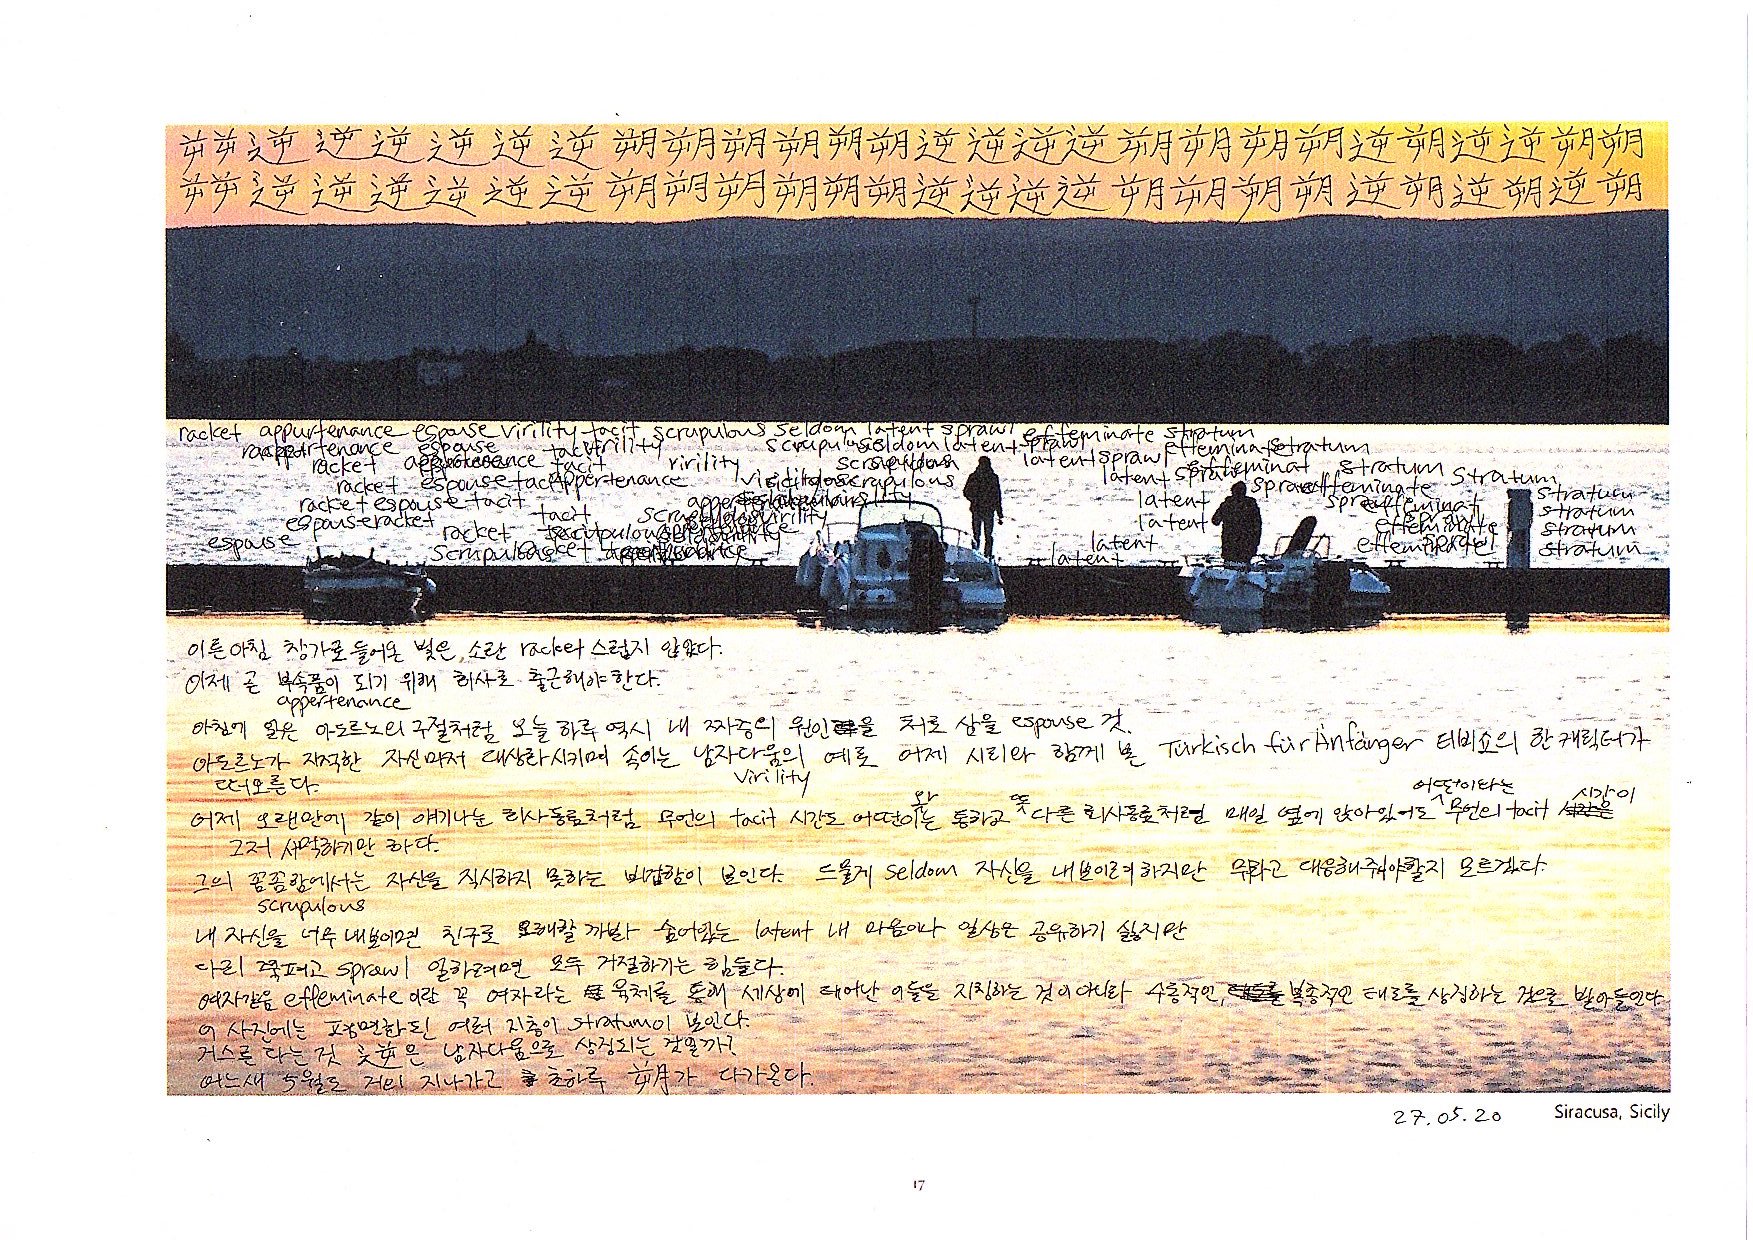 屰 屰 逆 逆 逆 逆 逆 逆 朔 朔 朔 朔 朔 朔 逆 逆 逆 逆 朔 朔 朔 朔 逆 朔 逆 逆 朔 朔
屰 屰 逆 逆 逆 逆 逆 逆 朔 朔 朔 朔 朔 朔 逆 逆 逆 逆 朔 朔 朔 朔 逆 朔 逆 朔 逆 朔
racket appurtenance espouse virility tacit scrupulous seldom latent sprawl effeminate stratum
espouse virility seldom latent sprawl effeminate stratum
racket tacit virility scrupulous latent sprawl effeminat stratum
racket espouse tacit appertenance scrupulous latent effeminate stratum
racket espouse tacit latent stratum
espouse racket tacit virility latent effeminate stratum
espouse racket latent effeminate stratum
latent stratum
이른 아침 창가로 들어온 빛은, 소란 racket 스럽지 않았다.
이제 곧 부속품이 되기 위해 회사로 출근해야 한다.
appertenance
아침에 읽은 아도르노의 구절처럼 오늘 하루 역시 내 짜증의 원인을 처로 삼을 espouse 것.
아도르노가 지적한 자신마저 대상화시키며 속이는 남자다움의 예로 어제 시리와 함께 본 Türkisch für Anfänger 티비쇼의 한 캐릭터가
virility
떠오른다.
어제 오랜만에 같이 얘기나눈 회사동료처럼 무언의 tacit 시간도 어떤이와는 통하고 또 다른 회사동료처럼 매일 옆에 앉아있어도 어떤이와는 무언의 tacit 시간이
그저 삭막하기만 하다.
그의 꼼꼼함에서는 자신을 직시하지 못하는 비겁함이 보인다. 드물게 seldom 자신을 내보이려 하지만 뭐라고 대응해줘야할지 모르겠다.
scrupulous
내 자신을 너무 내보이면 친구로 오해할 까봐 숨어있는 latent 내 마음이나 일상은 공유하기 싫지만
다리 쭉펴고 sprawl 일하려면 모두 거절하기는 힘들다.
여자같은 effeminate 이란 꼭 여자라는 육체를 통해 세상에 태어난 이들을 지칭하는 것이 아니라 수동적인, 복종적인 태도를 상징하는 것으로 받아들인다.
이 사진에는 평면화된 여러 지층이 stratum이 보인다.
거스른다는 것 逆은 남자다움으로 상징되는 것일까?
어느새 5월도 거의 지나가고 초하루 朔가 다가온다.
27.05.20 Siracusa, Sicily
17